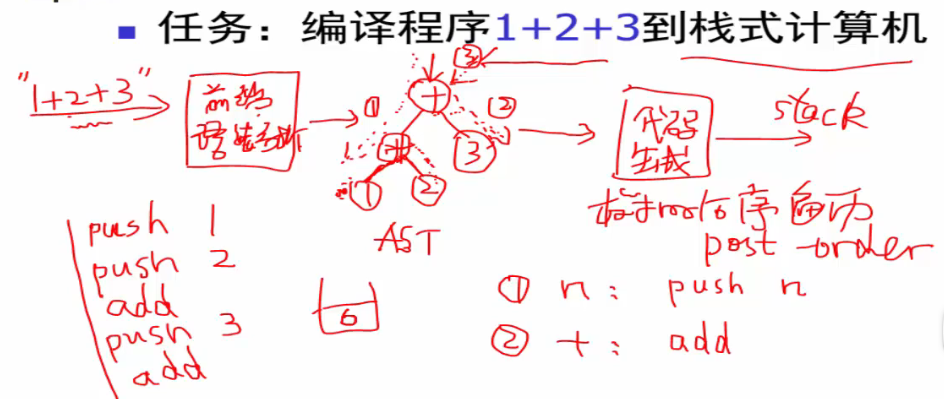 任务：编译程序1+2+3到栈式计算机
"1+2+3"
前端
语法分析
①
②
③
+
+
3
1
2
AST
代码
生成
stack
后序遍历
post-order
push 1
push 2
add
push 3
add
6
① n： push n
② +： add